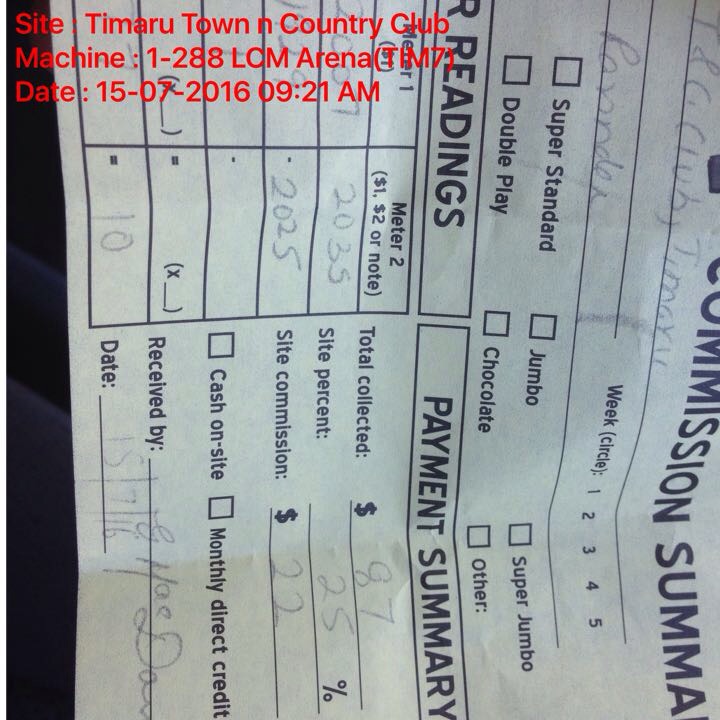 Site : Timaru Town n Country Club
Machine : 1-288 LCM Arena(TIM7)
Date : 15-07-2016 09:21 AM
COMMISSION SUMMA
Timaru
Week (circle): 1 2 3 4 5
Super Standard
Jumbo
Super Jumbo
Double Play
Chocolate
Other:
R READINGS
PAYMENT SUMMARY
Meter 1
($1)
Meter 2
($1, $2 or note)
2035
- 2025
-
(x__)
(x__)
=
=
= 10
Total collected: $ 87
Site percent: 25 %
Site commission: $ 22
Cash on-site
Monthly direct credit
Received by:
Date: 15/7/16